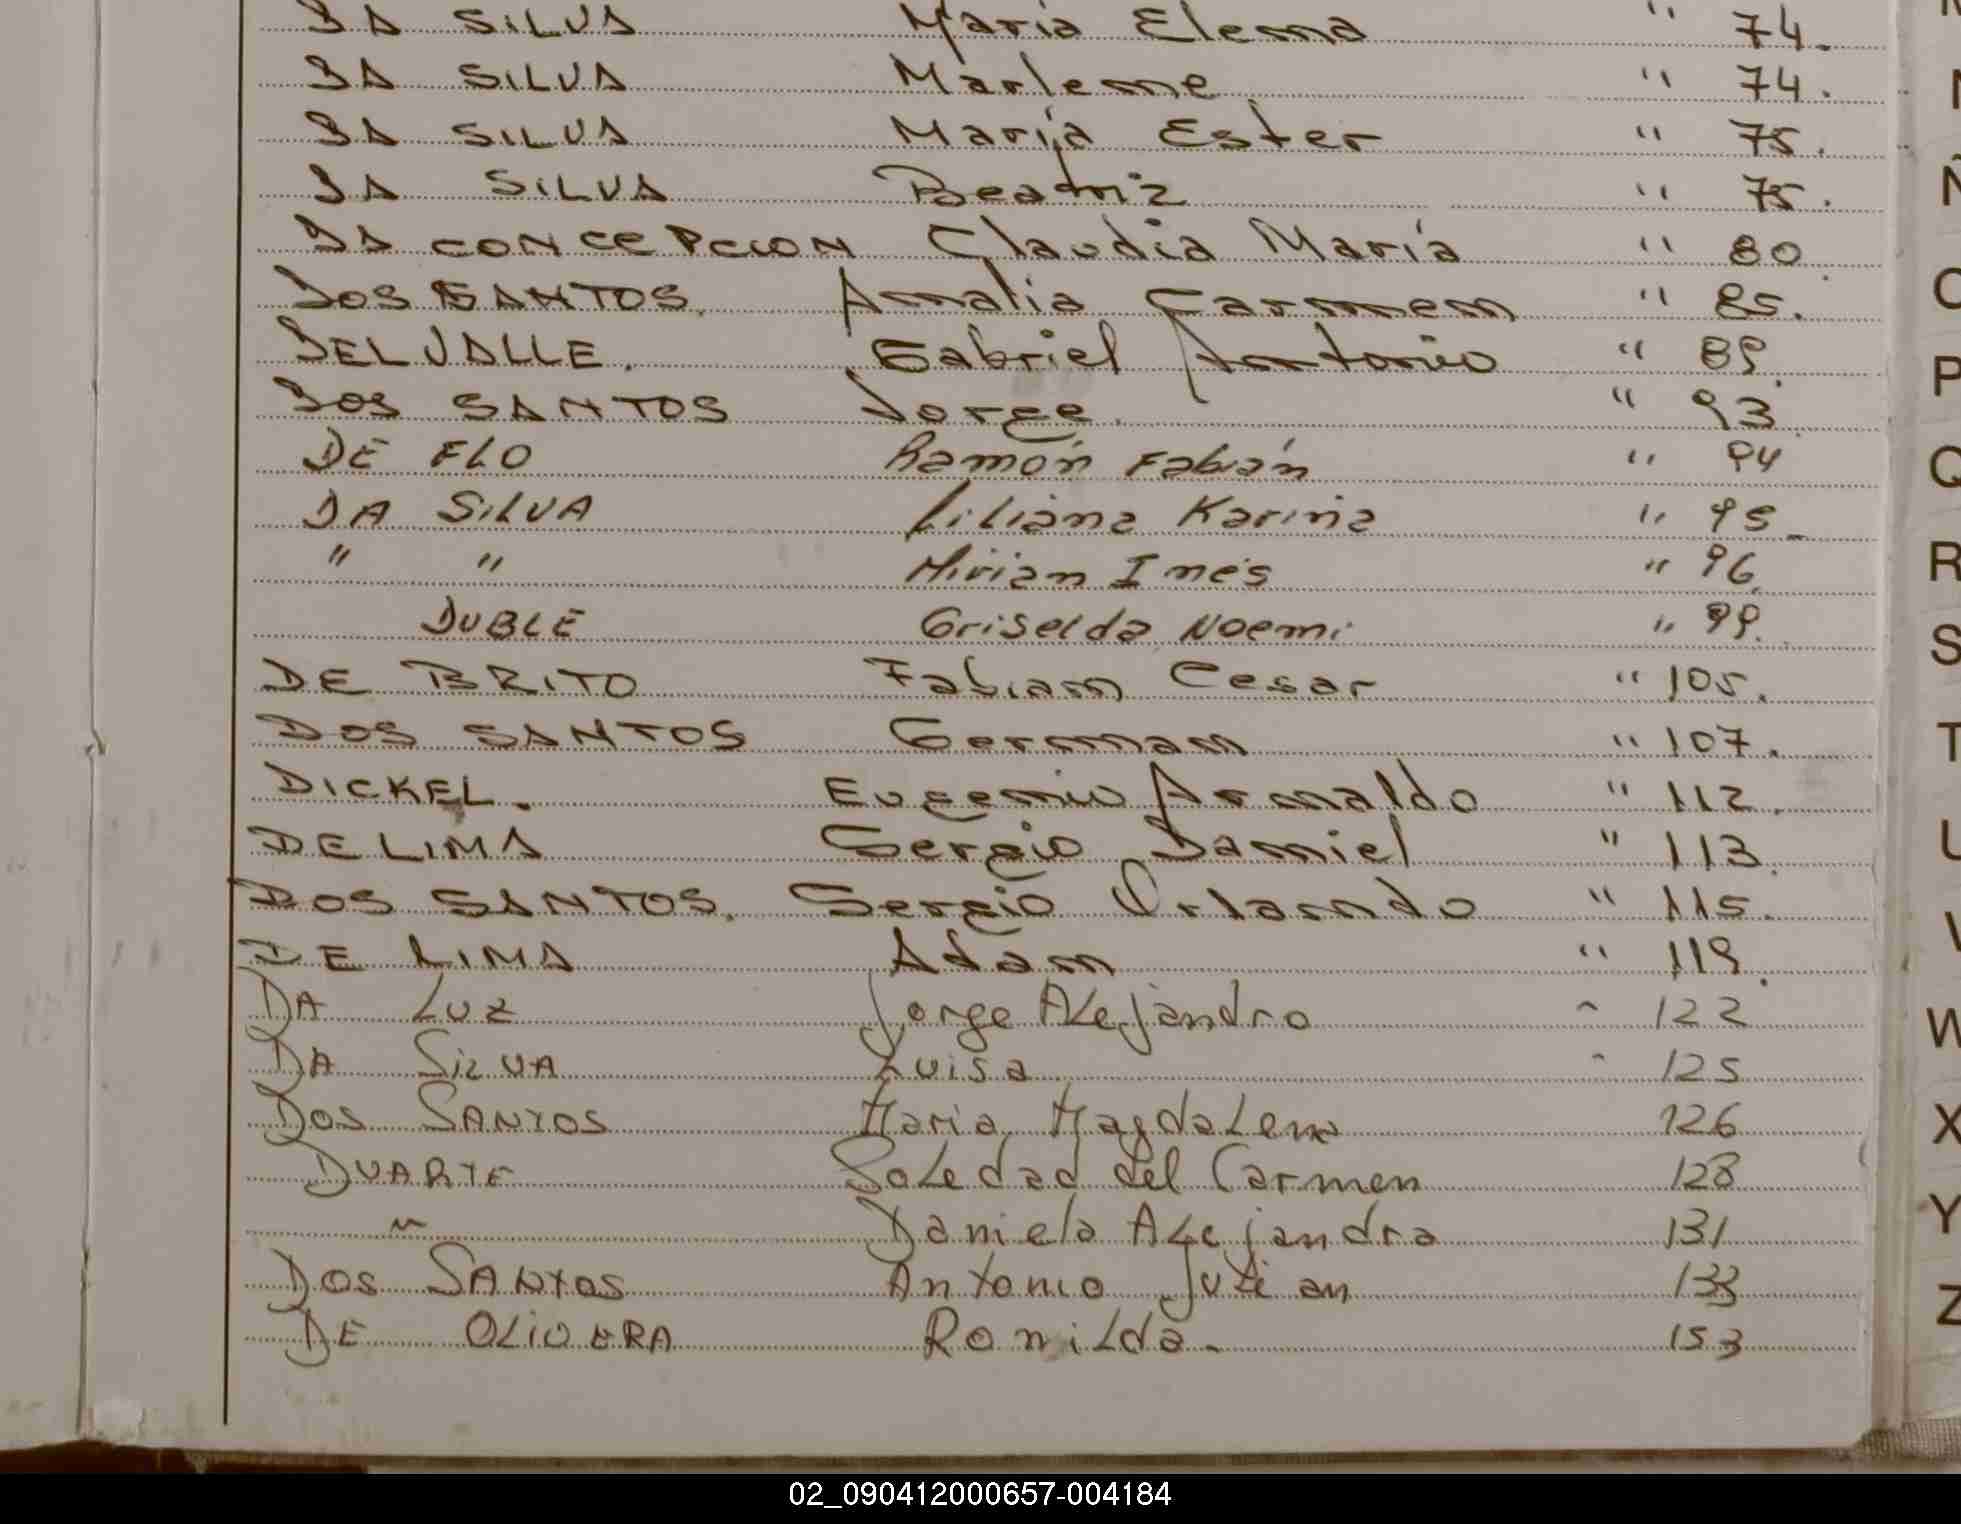 DA SILVA Maria Elena " 74.
DA SILVA Marlene " 74.
DA SILVA Maria Ester " 75.
DA SILVA Beatriz " 75.
DA CONCEPCION Claudia María " 80.
DOS SANTOS. Amalia Carmen " 85.
DELVALLE. Gabriel Antonio " 89.
DOS SANTOS Jorge. " 93.
DE FLO Ramón Fabián " 94
DA SILVA Liliana Karina " 95
" " Mirian Inés " 96.
DUBLE Griselda Noemi " 99.
DE BRITO Fabian Cesar " 105.
DOS SANTOS German " 107.
DICKEL. Eugenio Arnaldo " 112.
DE LIMA Sergio Daniel " 113.
DOS SANTOS. Sergio Orlando " 115.
DE LIMA Adan " 119.
DA LUZ Jorge Alejandro " 122
DA SILVA Luisa " 125
DOS SANTOS Maria Magdalena 126
DUARTE Soledad del Carmen 128
" Daniela Alejandra 131
DOS SANTOS Antonio Julian 133
DE OLIVERA Romilda. 153
N
Ñ
O
P
Q
R
S
T
U
V
W
X
Y
Z
02_090412000657-004184